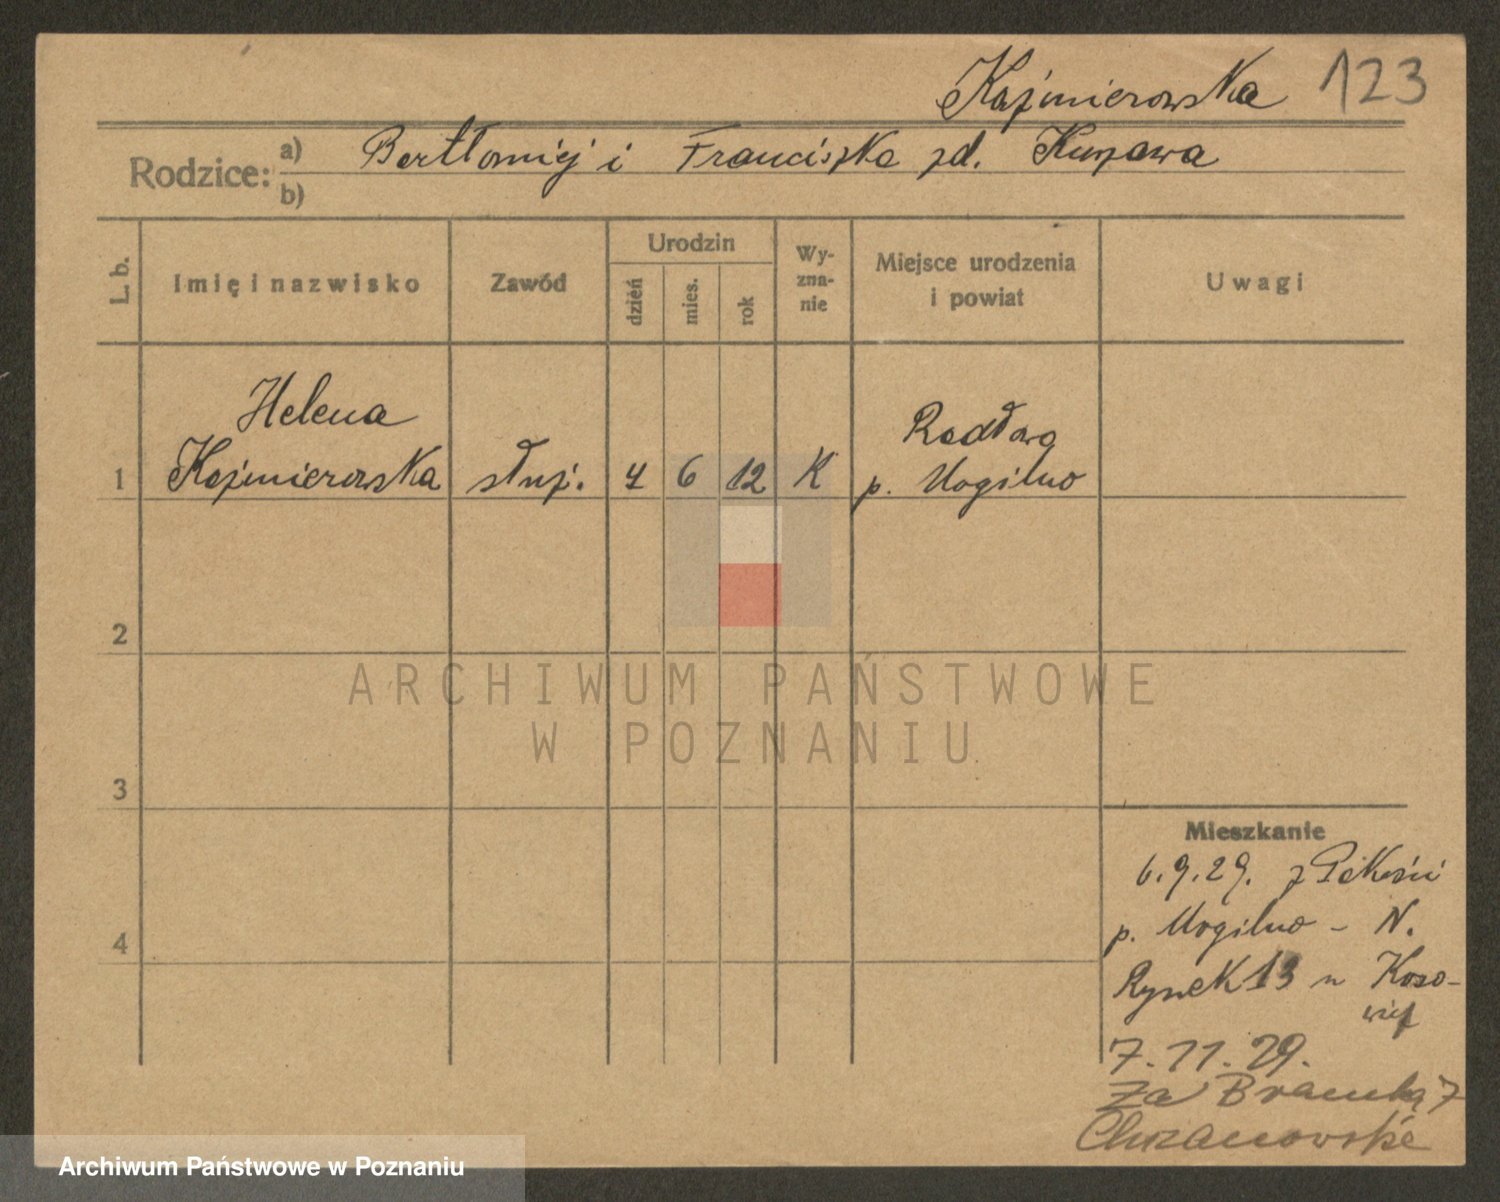 Kaźmierowska 123
Rodzice: a) Bartłomiej i Franciszka zd. Kurzawa
b)
L. b.
Imię i nazwisko
Zawód
Urodzin
dzień
mies.
rok
Wy-
zna-
nie
Miejsce urodzenia
i powiat
Uwagi
Helena Radłowo
1 Kaźmierowska służ. 4 6 12 K p. Mogilno
2
3
4
Mieszkanie
6.9.29. z Pakości
p. Mogilno - N.
Rynek 13 u
7.11.29.
Za Bramką 7
Chrzanowska
ARCHIWUM PAŃSTWOWE
W POZNANIU
Archiwum Państwowe w Poznaniu